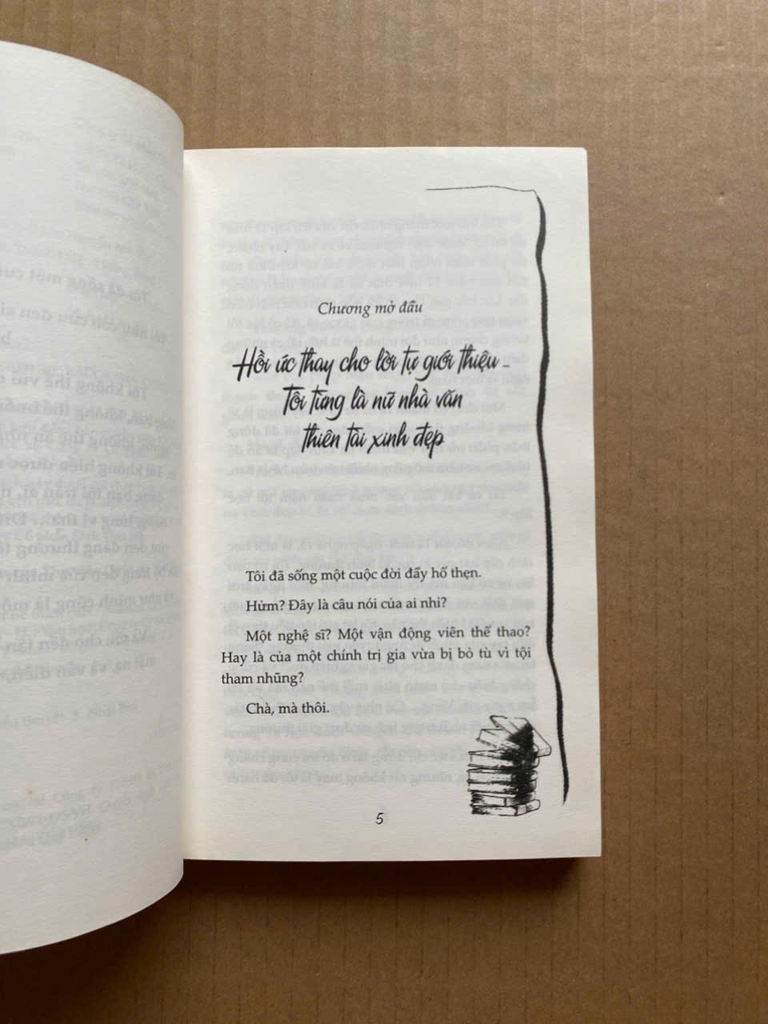 Chương mở đầu
Hồi ức thay cho lời tự giới thiệu –
Tôi từng là nữ nhà văn
thiên tài xinh đẹp
Tôi đã sống một cuộc đời đầy hổ thẹn.
Hửm? Đây là câu nói của ai nhỉ?
Một nghệ sĩ? Một vận động viên thể thao?
Hay là của một chính trị gia vừa bị bỏ tù vì tội
tham nhũng?
Chà, mà thôi.
5